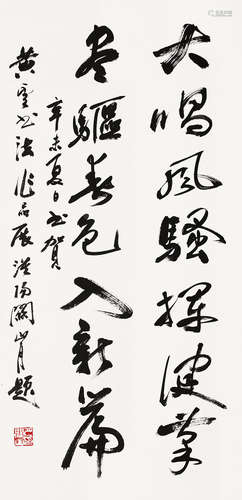 大唱风骚挥健笔
尽驱春色入新篇
辛未夏日书贺
黄云书法作品展 汉阳阚山月题